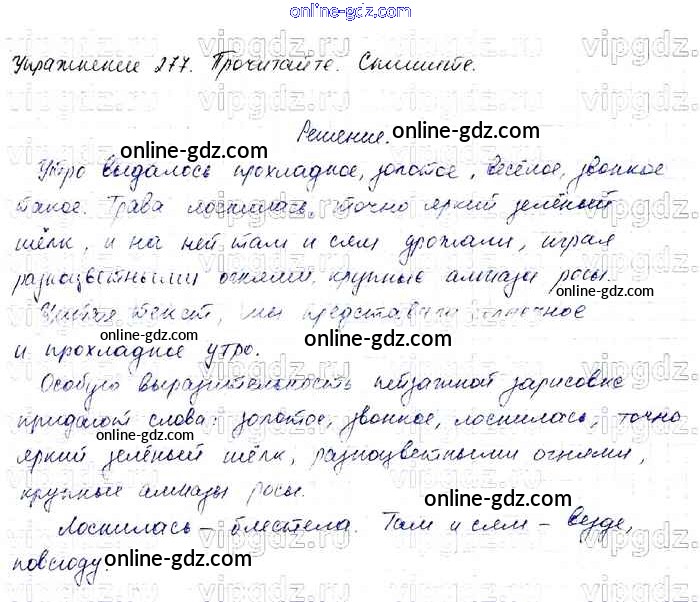 online-gdz.com
Упражнение 277. Прочитайте. Спишите.
Решение.
online-gdz.com
online-gdz.com
Утро выдалось прохладное, золотое, весёлое, звонкое
такое. Трава лоснилась, точно яркий зелёный
шёлк, и на ней там и сям дрожали, играя
разноцветными огнями, крупные алмазы росы.
Читая текст, мы представили солнечное
и прохладное утро.
online-gdz.com
online-gdz.com
online-gdz.com
online-gdz.com
Особую выразительность пейзажной зарисовке
придают слова: золотое, звонкое, лоснилась, точно
online-gdz.com
яркий зелёный шёлк, разноцветными огнями,
крупные алмазы росы.
online-gdz.com
Лоснилась – блестела. Там и сям – везде,
повсюду.
online-gdz.com
online-gdz.com
vipgdz.ru